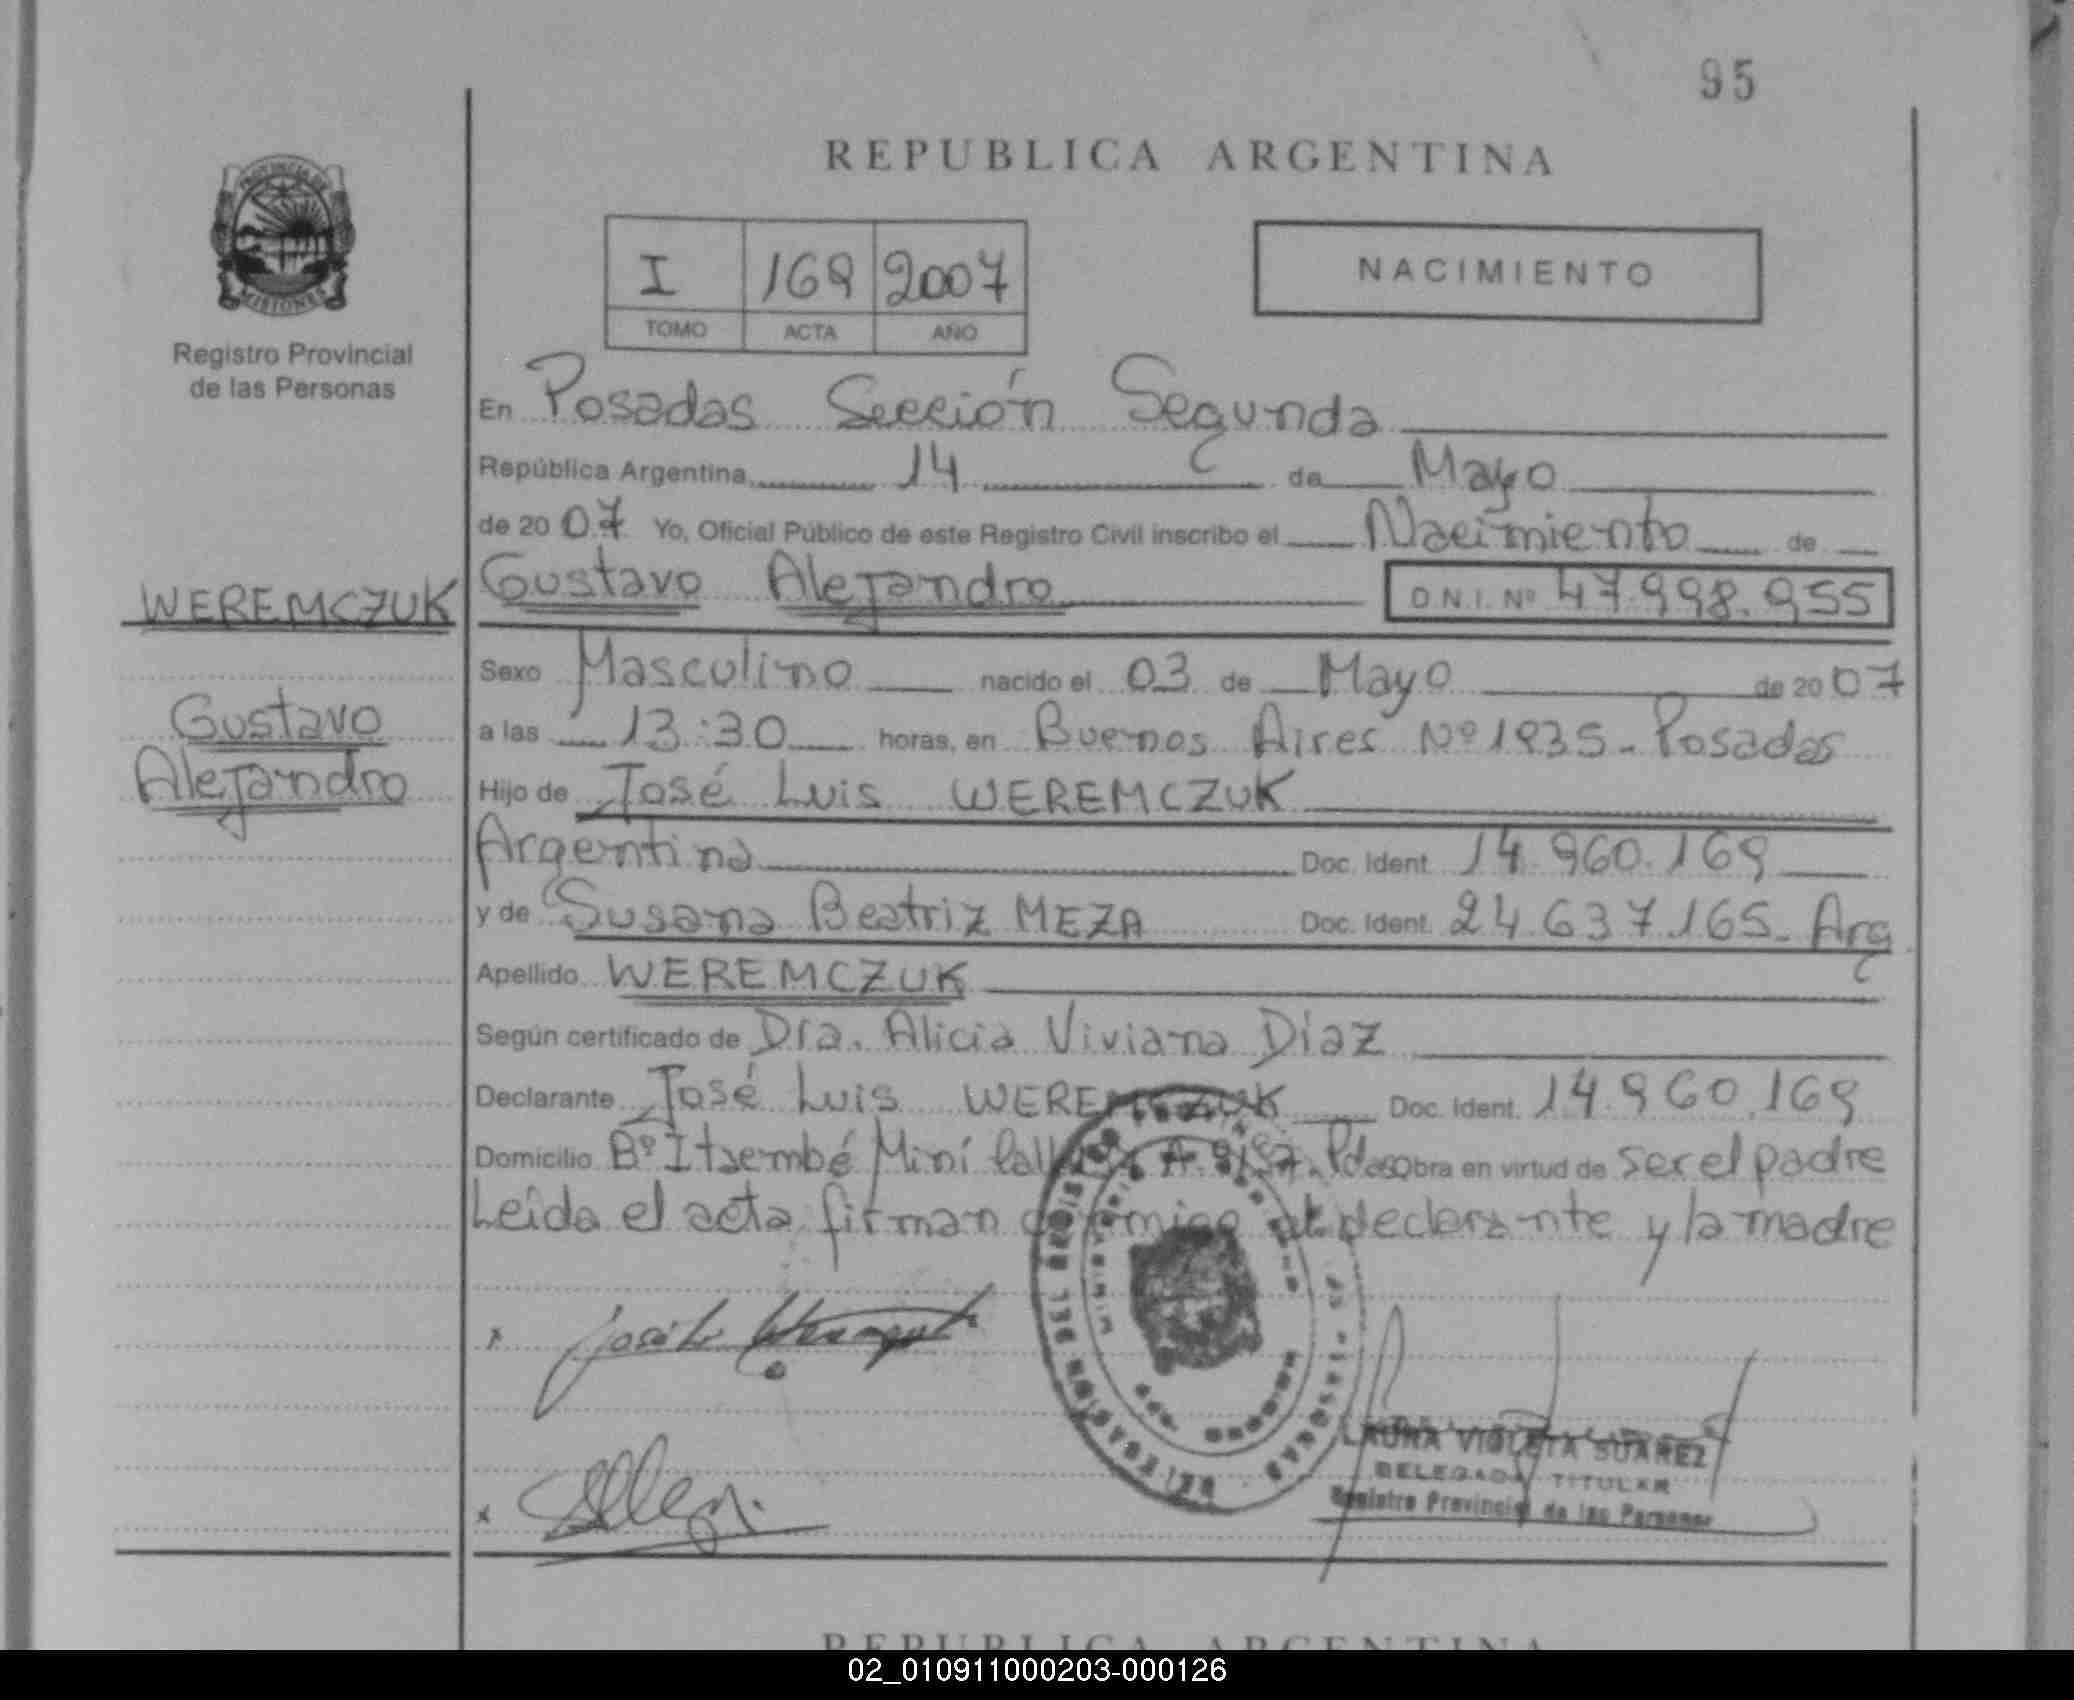 95
REPUBLICA ARGENTINA
PROVINCIA DE
MISIONES
Registro Provincial
de las Personas
I 169 2007
TOMO ACTA AÑO
NACIMIENTO
En Posadas Sección Segunda
República Argentina, 14 de Mayo
de 2007 Yo, Oficial Público de este Registro Civil inscribo el Nacimiento de
WEREMCZUK
Gustavo Alejandro D.N.I. Nº 47.998.955
Sexo Masculino nacido el 03 de Mayo de 2007
Gustavo
Alejandro
a las 13:30 horas, en Buenos Aires Nº 1935. Posadas
Hijo de José Luis WEREMCZUK
Argentina Doc. Ident. 14.960.169
y de Susana Beatriz MEZA Doc. Ident. 24.637.165. Arg
Apellido WEREMCZUK
Según certificado de Dra. Alicia Viviana Díaz
Declarante José Luis WEREMCZUK Doc. Ident. 14.960.169
Domicilio Bº Itaembé Miní obra en virtud de ser el padre
Leída el acta firman conmigo el declarante y la madre
LAURA VIOLETA SUAREZ
DELEGADA TITULAR
Registro Provincial de las Personas
REPUBLICA ARGENTINA
02_010911000203-000126